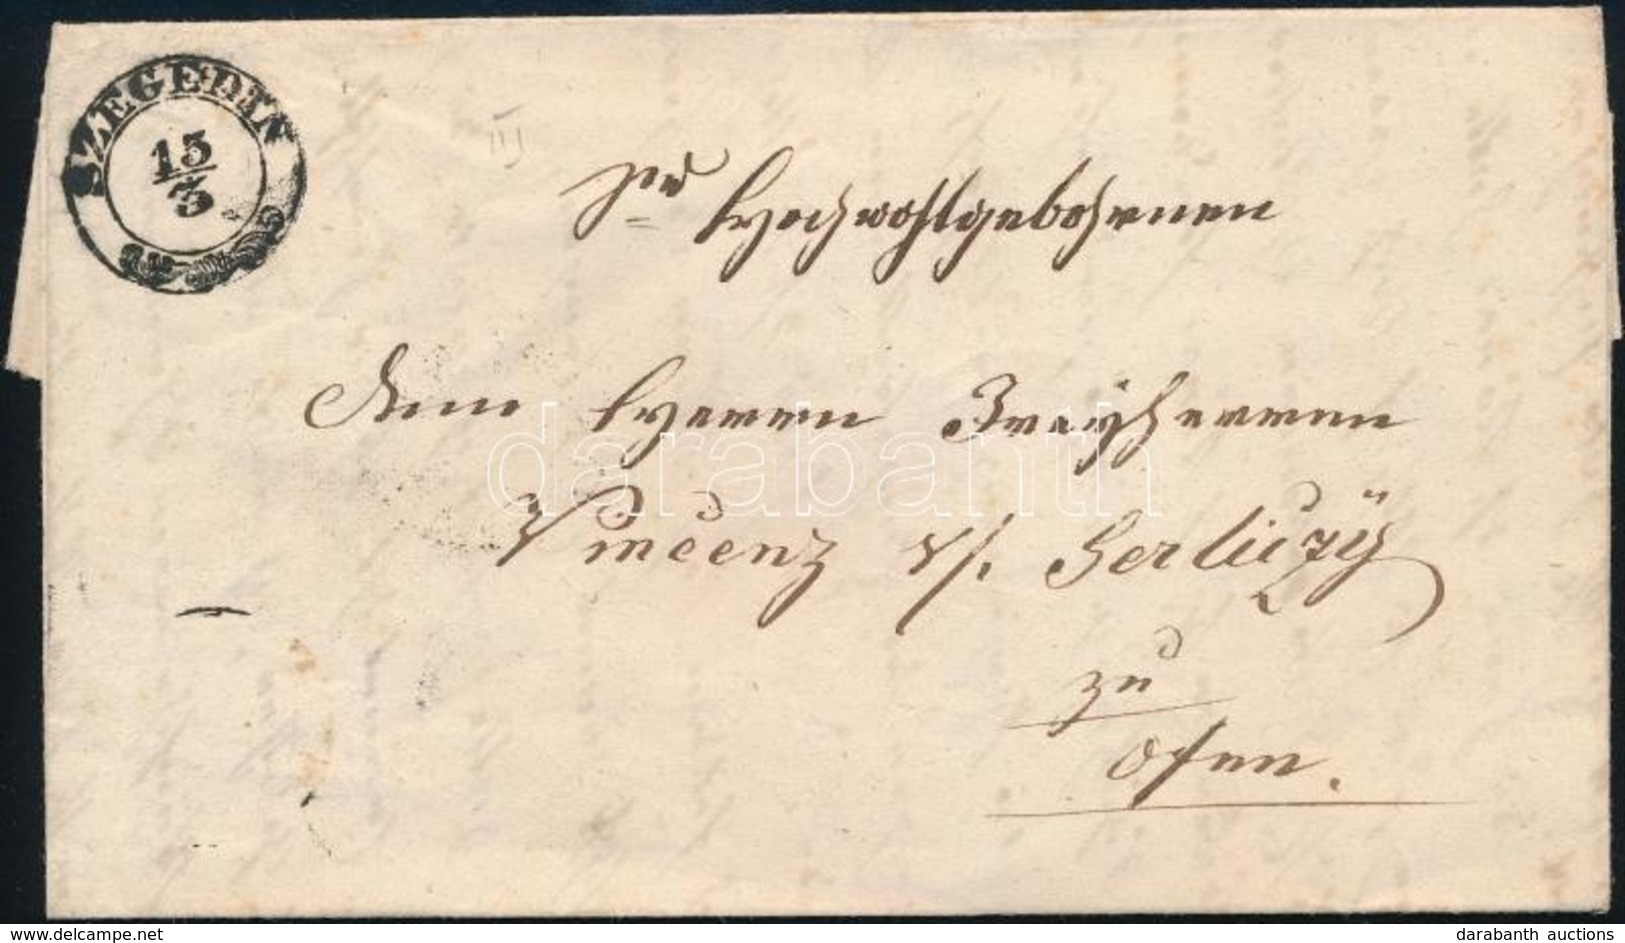 SZEGEDIN
13/3
Hochwohlgebohrnen
Herrn Freyherrn
Vincenz v.
zu
Ofen.
darabanth
delcampe.net
darabanth auctions